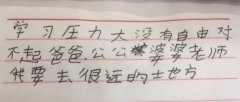 学习压力大没有自由对
不起爸爸.公公婆婆老师
我要去很远的土也方